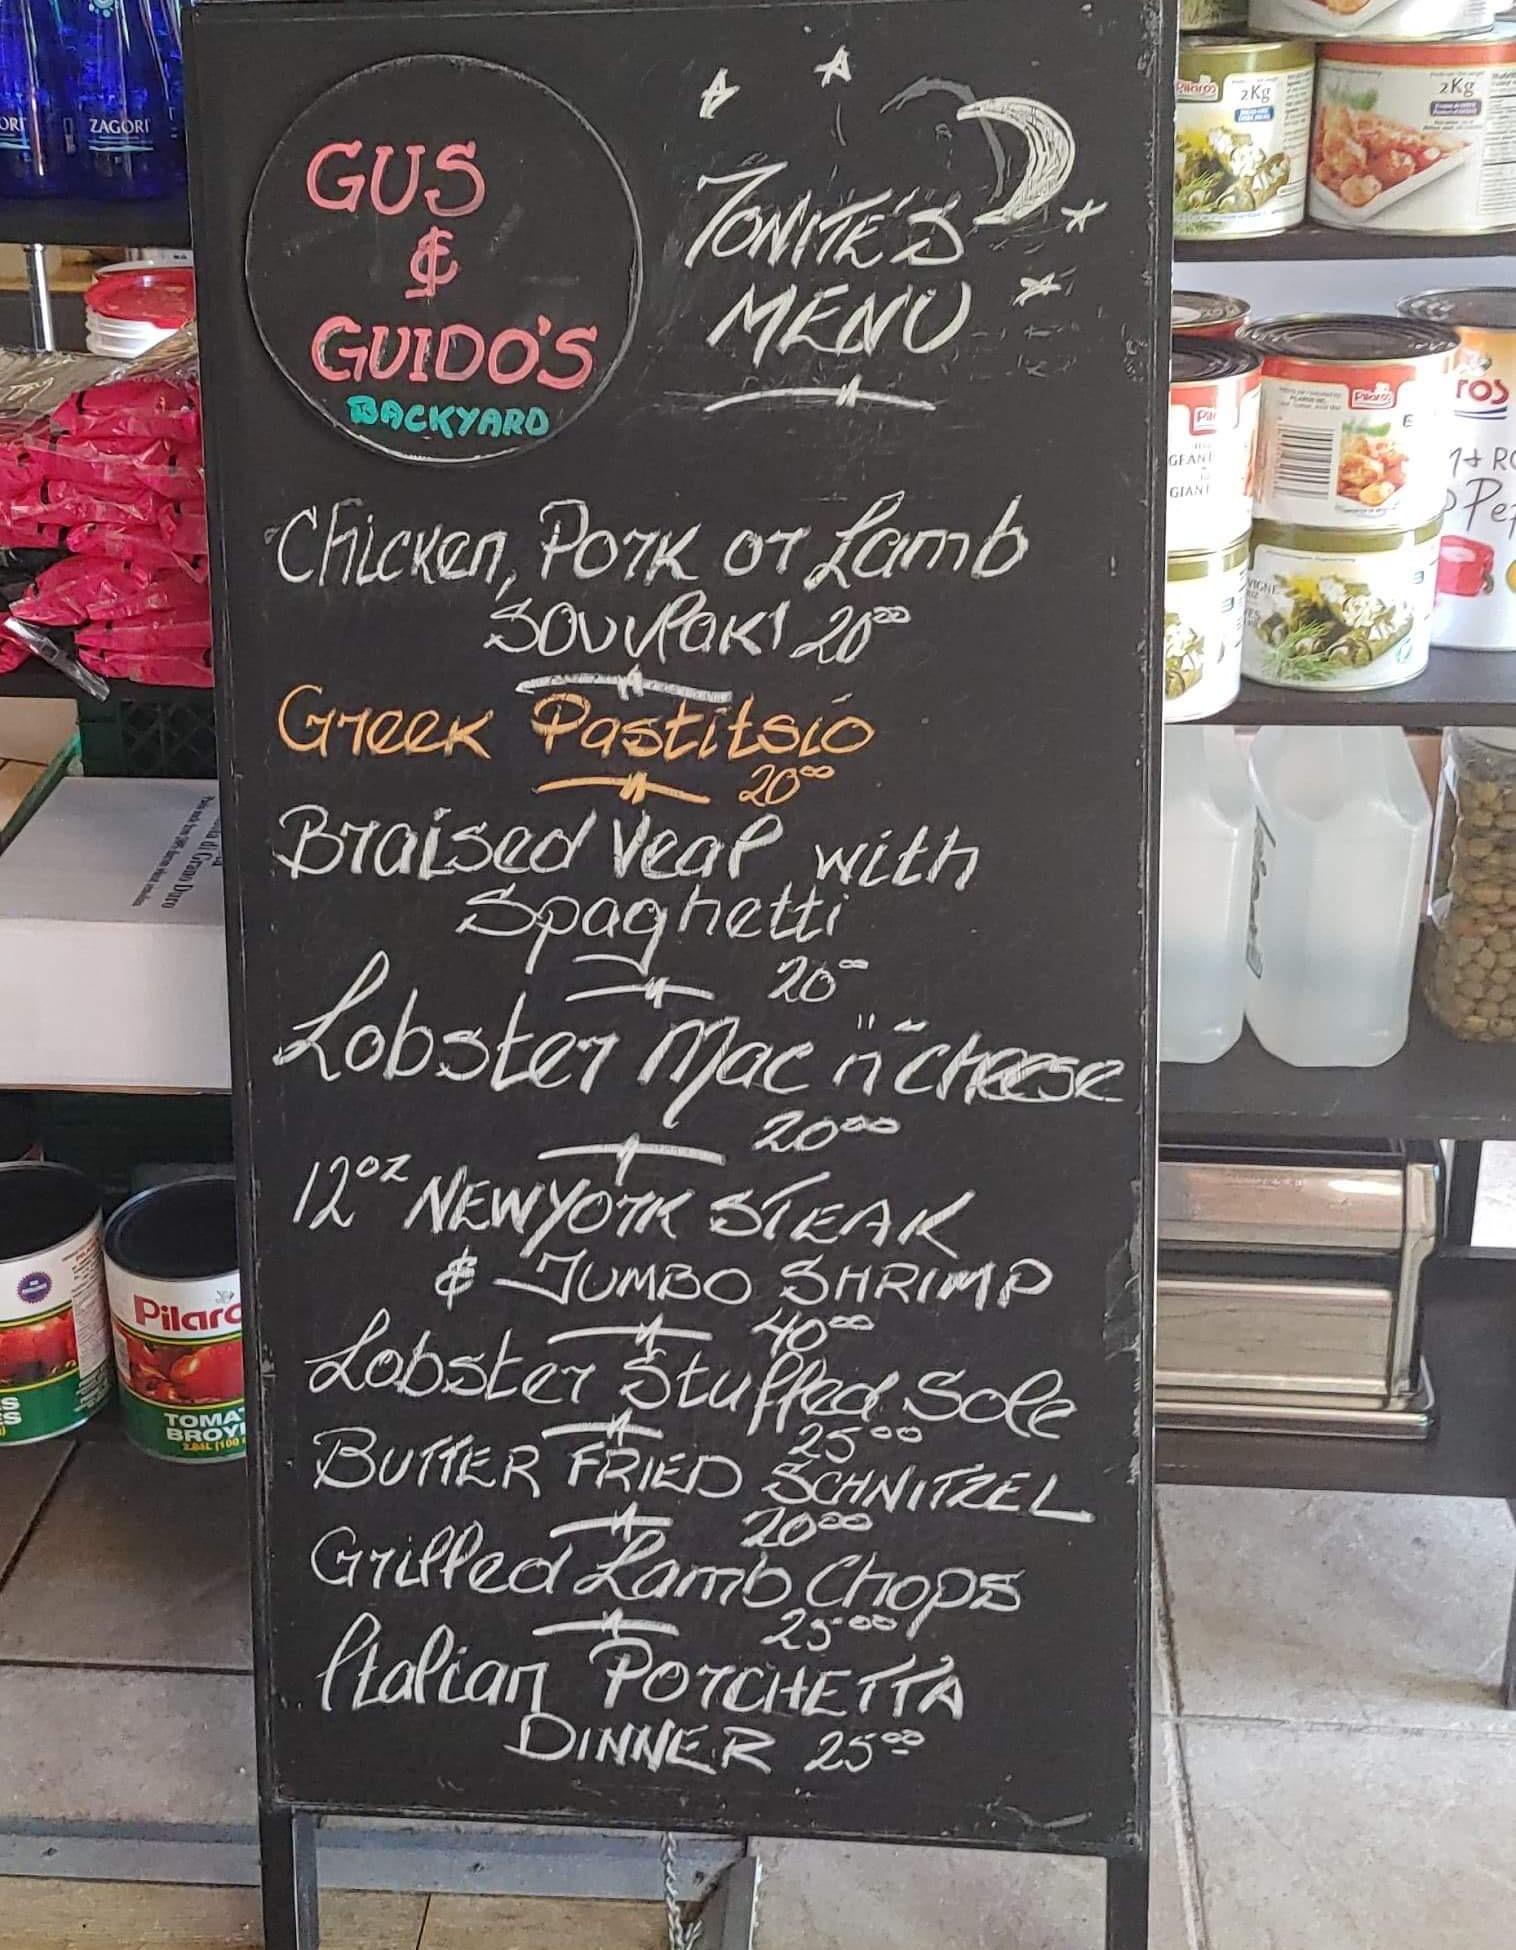 GUS
&
GUIDO'S
BACKYARD
TONITE'S
MENU
Chicken, Pork or Lamb
SOUVLAKI 20⁰⁰
Greek Pastitsio
20⁰⁰
Braised Veal with
Spaghetti
20⁰⁰
Lobster Mac "n" cheese
20⁰⁰
12oz NEW YORK STEAK
& JUMBO SHRIMP
40⁰⁰
Lobster Stuffed Sole
25⁰⁰
BUTTER FRIED SCHNITZEL
20⁰⁰
Grilled Lamb Chops
25⁰⁰
Italian PORCHETTA
DINNER 25⁰⁰
ZAGORI
Pilaros
2Kg
2Kg
Pilaros
GIANT
di Grano Duro
Pilaro
TOMA
BROY